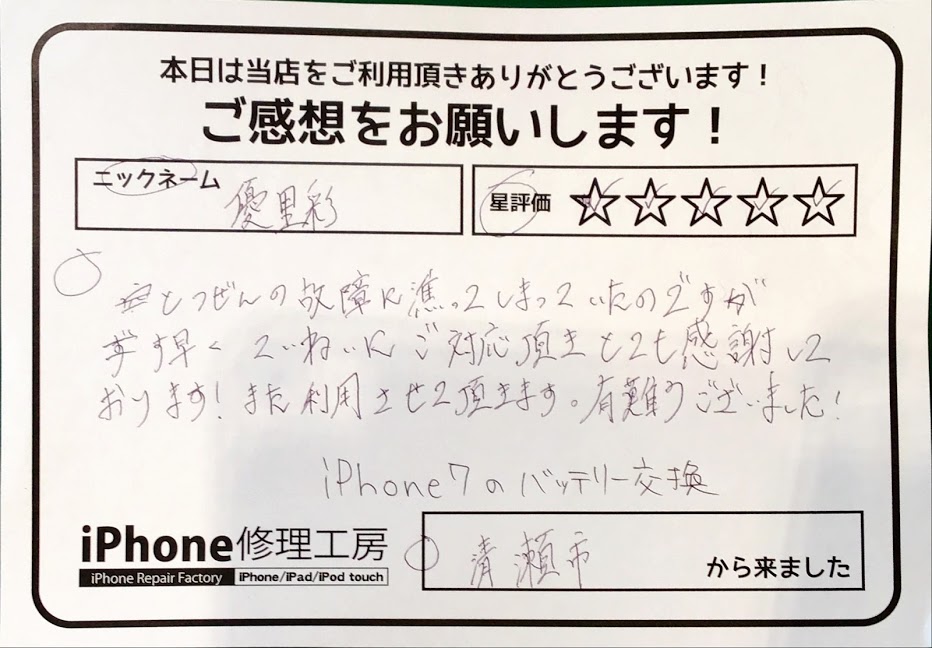 本日は当店をご利用頂きありがとうございます！
ご感想をお願いします！
ニックネーム 優里彩
星評価
とつぜんの故障に焦ってしまっていたのですが
す早く ていねいに ご対応頂きとても感謝して
おります！また利用させて頂きます。有難うございました！
iPhone7のバッテリー交換
iPhone修理工房
iPhone Repair Factory iPhone/iPad/iPod touch
清瀬市 から来ました